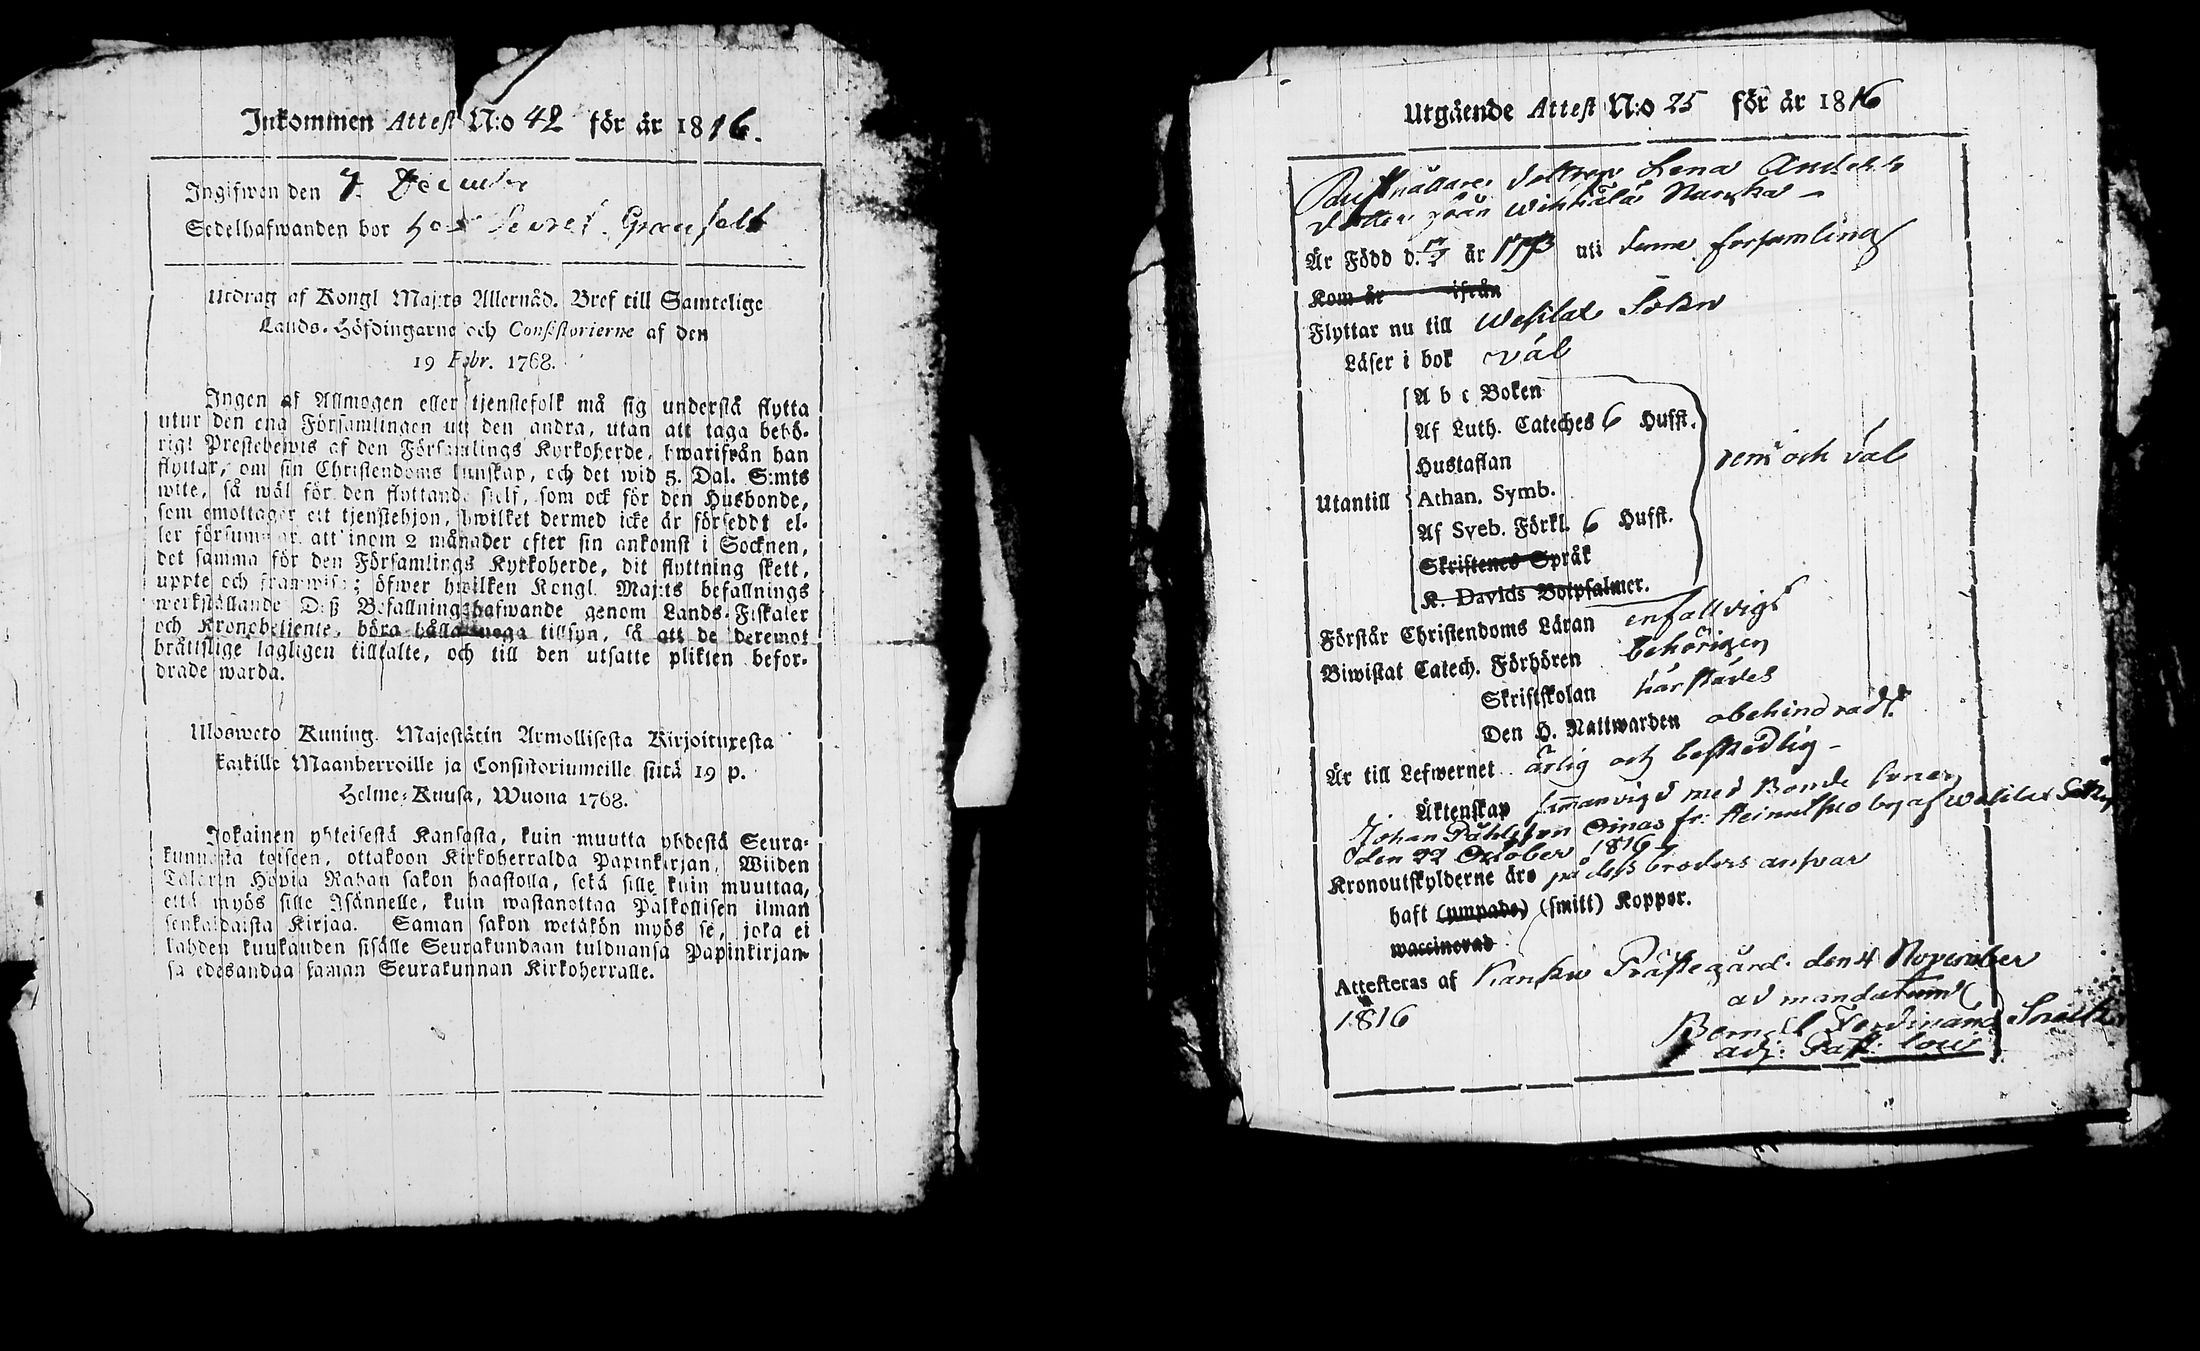 Inkommen Attest N:o 42 för år 1816.
Ingifwen den 7 December
Sedelhafwanden bor hos
Utdrag af Kongl Maj:ts Allernåd. Bref till Samtelige
Lands-Höfdingarne och Consistorierne af den
19 Febr. 1768.
Ingen af Allmogen eller tjenstefolk må sig understå flytta
utur den ena Församlingen uti den andra, utan att taga behö-
rigt Prestebewis af den Församlings Kyrkoherde, hwarifrån han
flyttar, om sin Christendoms kunskap, och det wid 5. Dal. S:mts
wite, så wäl för den flyttande sjelf, som ock för den Husbonde,
som emottager ett tjenstehjon, hwilket dermed icke är försedt el-
ler försummar att inom 2 månader efter sin ankomst i Socknen,
det samma för den Församlings Kyrkoherde, dit flyttning skett,
uppte och framwisa; öfwer hwilken Kongl. Maj:ts befallnings
werkställande Deß Befallningshafwande genom Lands-Fiskaler
och Kronobetjente, böra hålla noga tillsyn, så att de deremot
bråttslige lagligen tilltalte, och till den utsatte plikten befor-
drade warda.
Uloswето Kuning. Majestätin Armollisesta Kirjoituxesta
kaikille Maanherroille ja Consistoriumeille siitä 19 p.
Helme-Kuusa, Wuona 1768.
Jokainen yhteisestä Kansasta, kuin muutta yhdestä Seura-
kunnasta toiseen, ottakoon Kirkoherralda Papinkirjan, Wiiden
Talarin Hopia Rahan sakon haastolla, sekä sille kuin muuttaa,
että myös sille Isännelle, kuin wastanottaa Palkollisen ilman
senkaldaista Kirjaa. Saman sakon wetäkön myös se, joka ei
kahden kuukauden sisälle Seurakundaan tulduansa Papinkirjan-
sa edesandaa saman Seurakunnan Kirkoherralle.
Utgående Attest N:o 25 för år 1816
Rusthållare dottren Lena Anders
dotter från Wihkälä
Är Född d. år uti denna församling
Kom år ifrån
Flyttar nu till Wesilax Sokn
Läser i bok väl
A b c Boken
Af Luth. Cateches 6 Hufst.
Hustaflan
Utantill Athan. Symb.
Af Sveb. Förkl. 6 Hufst.
Skriftenes Språk
K. Davids Botpsalmer.
rent och väl
Förstår Christendoms Läran enfalldigt
Biwistat Catech. Förhören behörigen
Skriftskolan härstädes
Den H. Nattwarden obehindradt
Är till Lefwernet ärlig och beskedlig
Äktenskap sammanvigd med Bonde sonen
Johan Påhlsson Oinas fr: by af Wesilax Sokn
den 22 October 1816
Kronoutskylderne äro på dess broders answar
haft (ympade) (smitt) Koppor.
waccinerad
Attesteras af Prästegård den 4 November
1816
ad mandatum
Ferdinand
adj: Past: loci